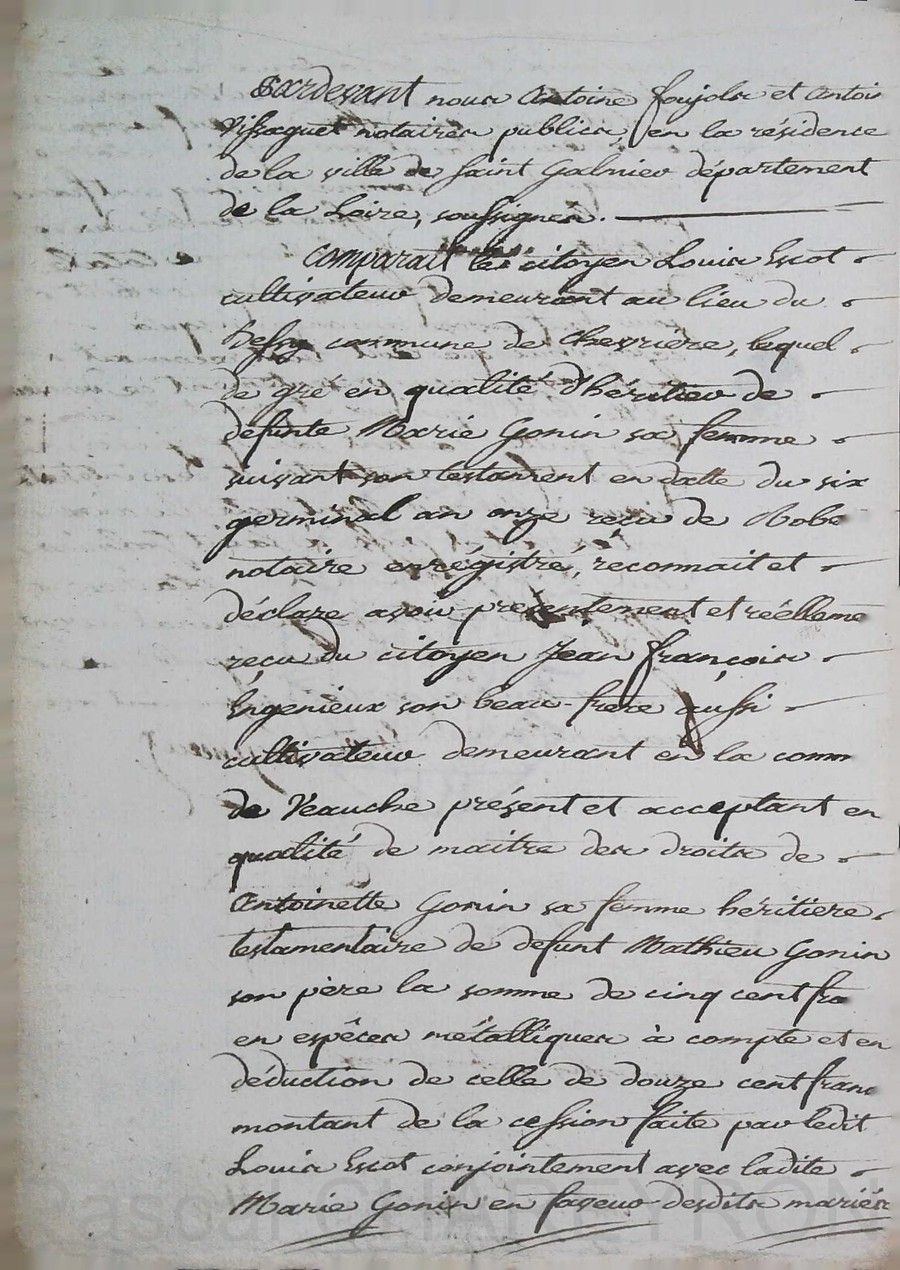 Pardevant nous Antoine foujols et Antoin
Vissaguet notaires publics, en la résidence
de la ville de saint Galmier département
de la Loire, soussignés.
Comparait le citoyen Louis Escot
cultivateur demeurant au lieu du
Bessy commune de Chevrière, lequel
de gré en qualité d'héritier de
defunte Marie Gonin sa femme
suivant son testament en datte du six
germinal an onze reçu de Robe
notaire enrégistré, reconnait et
déclare avoir presentement et réelleme
reçu du citoyen Jean françois
Engenieux son beau-frere aussi
cultivateur demeurant en la comm
de Veauche présent et acceptant en
qualité de maitre des droits de
Antoinette Gonin sa femme héritiere
testamentaire de defunt Mathieu Gonin
son père la somme de cinq cent fra
en espêces métalliques à compte et en
déduction de celle de douze cent franc
montant de la cession faite par ledit
Louis Escot conjointement avec ladite
Marie Gonin en faveur desdits mariés
Pascal CHAREYRON